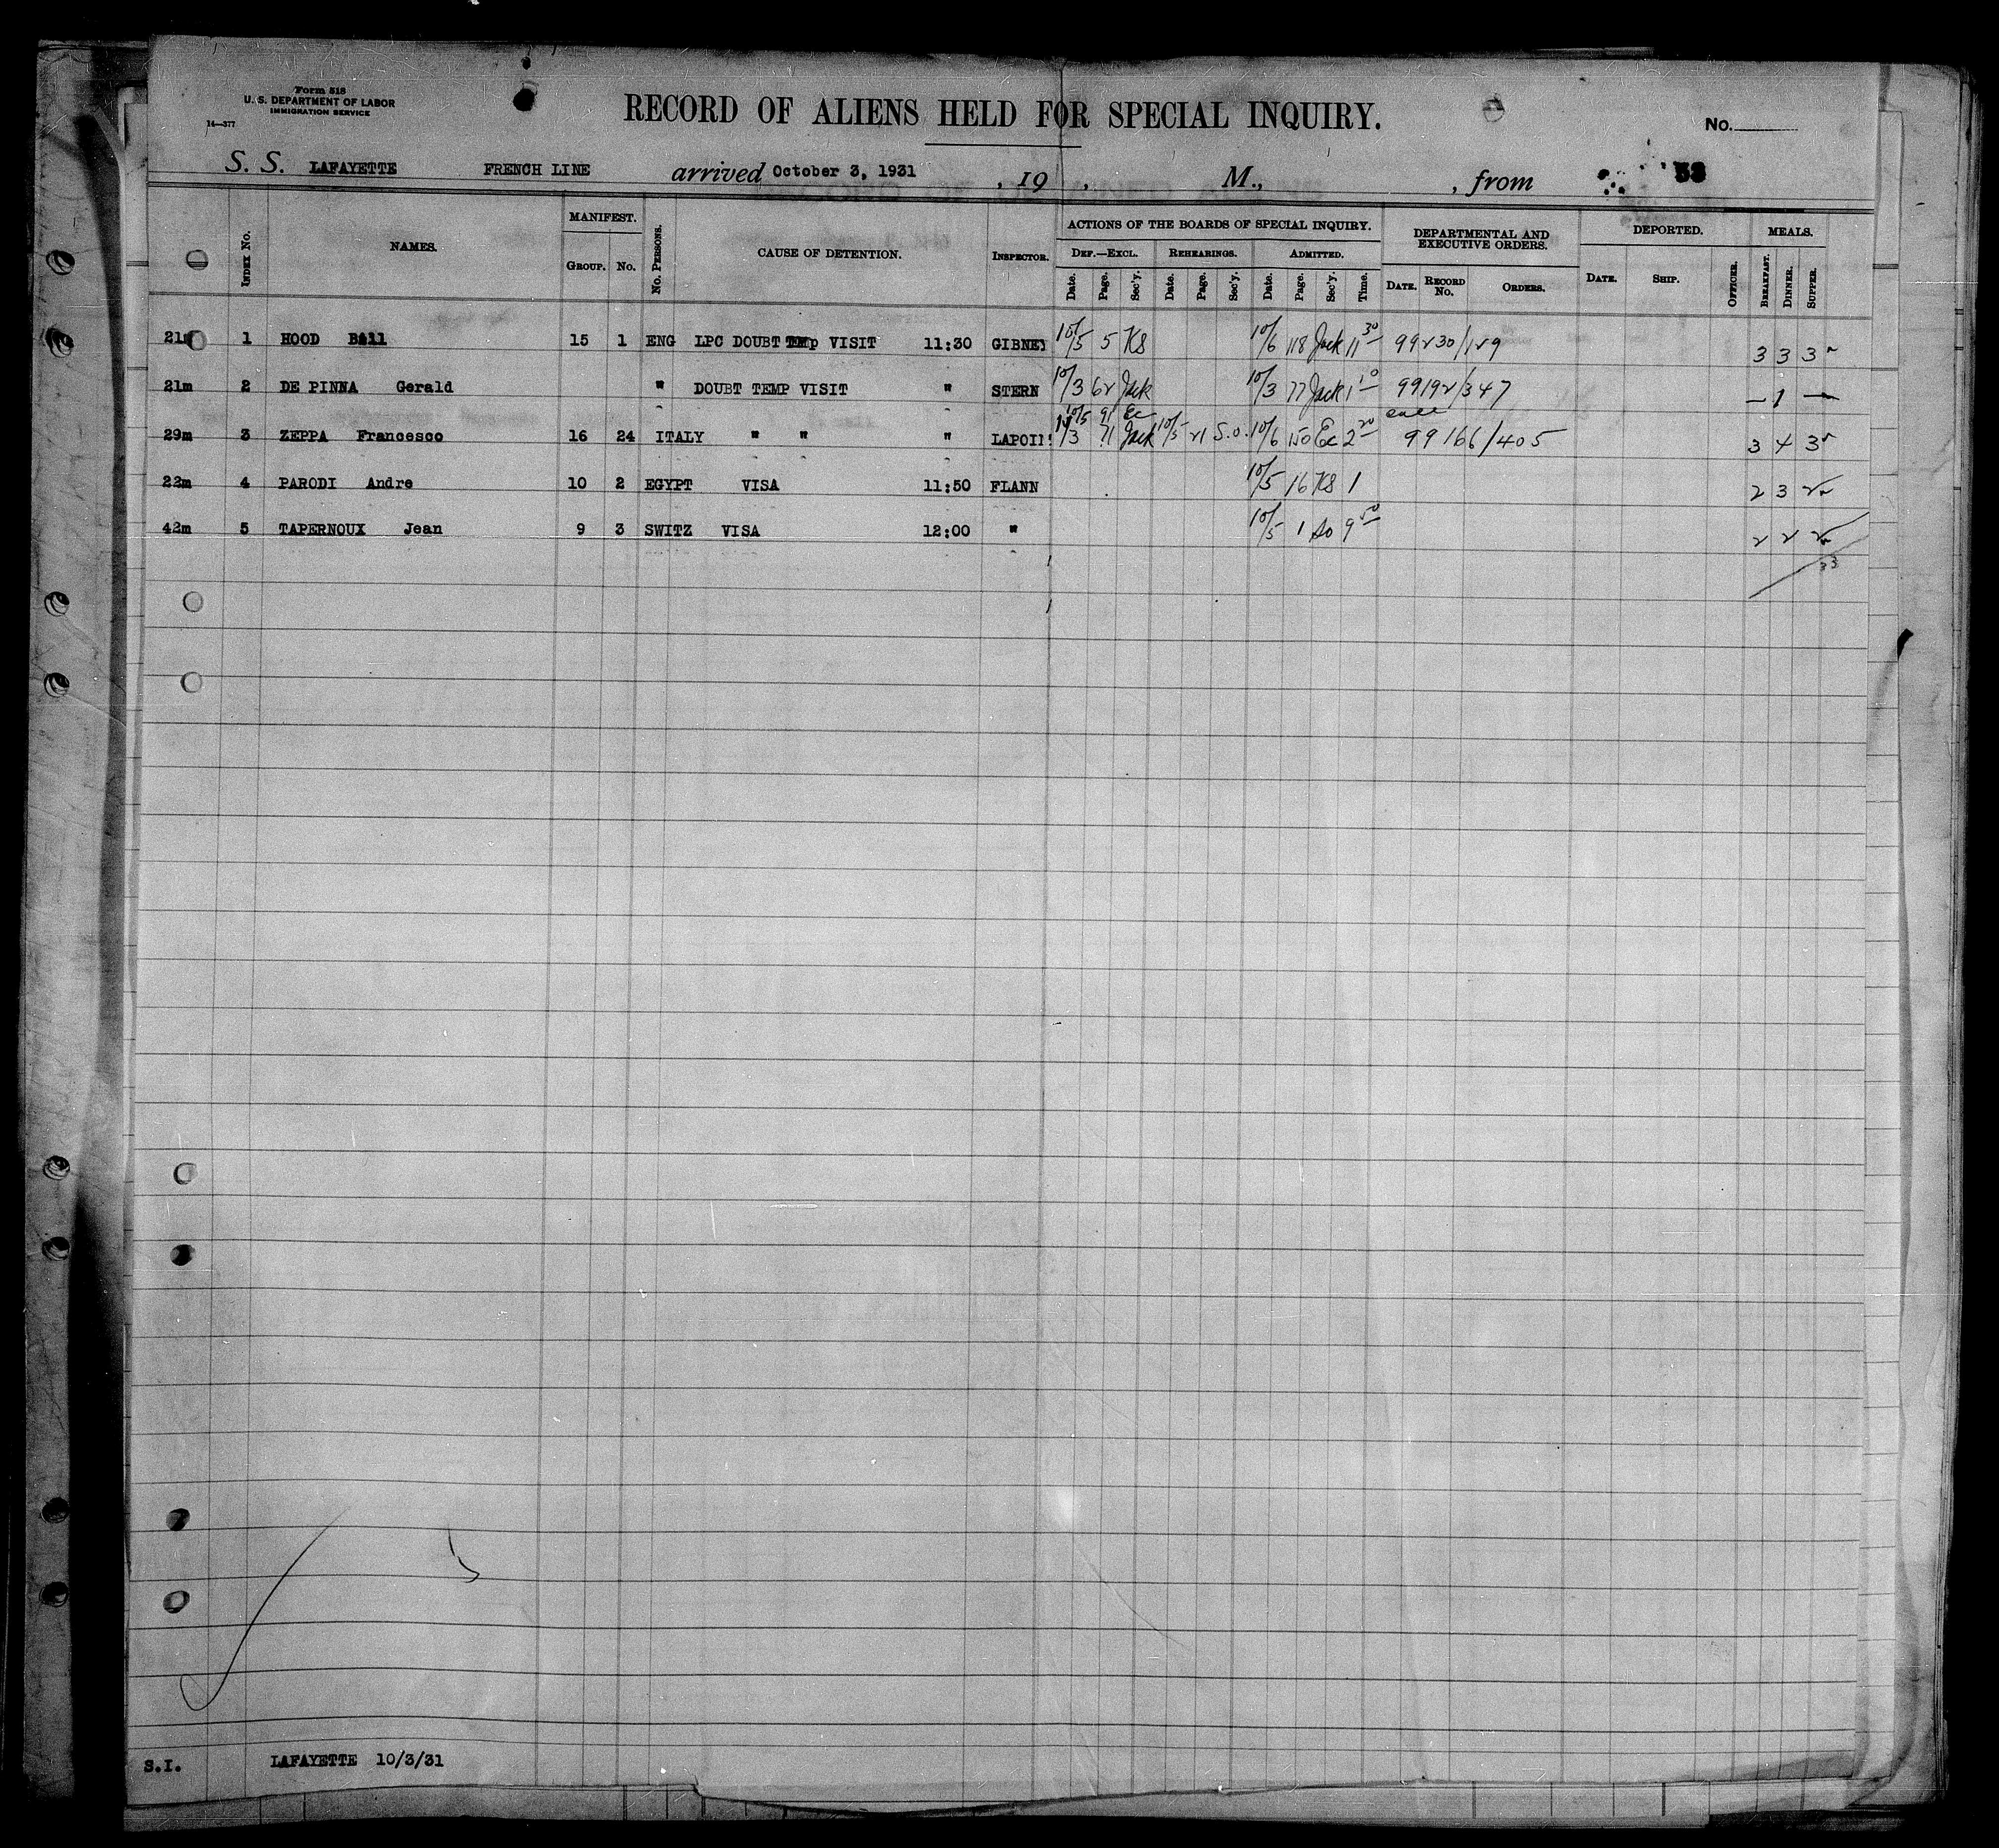 Form 518
U. S. DEPARTMENT OF LABOR
IMMIGRATION SERVICE
14—377
RECORD OF ALIENS HELD FOR SPECIAL INQUIRY.
No.
S. S. LAFAYETTE FRENCH LINE arrived October 3, 1931 , 19 , M., , from 53
INDEX No. NAMES. MANIFEST. GROUP. No. No. PERSONS. CAUSE OF DETENTION. INSPECTOR. ACTIONS OF THE BOARDS OF SPECIAL INQUIRY. DEPARTMENTAL AND EXECUTIVE ORDERS. DEPORTED. MEALS.
DEF.—EXCL. REHEARINGS. ADMITTED.
Date. Page. Sec'y. Date. Page. Sec'y. Date. Page. Sec'y. Time. DATE. RECORD No. ORDERS. DATE. SHIP. OFFICER. BREAKFAST. DINNER. SUPPER.
21m 1 HOOD Bill 15 1 ENG LPC DOUBT TEMP VISIT 11:30 GIBNEY 10/5 5 KS 10/6 118 Jack 11 30 99230/129 3 3 3
21m 2 DE PINNA Gerald " DOUBT TEMP VISIT " STERN 10/3 62 Jack 10/3 77 Jack 1 10 99192/347 — 1 —
10/5 91 Ec
29m 3 ZEPPA Francesco 16 24 ITALY " " " LAPOII 10/3 71 Jack 10/5 21 S.O. 10/6 150 Ec 2 20 99166/405 3 4 3
22m 4 PARODI Andre 10 2 EGYPT VISA 11:50 FLANN 10/5 16 KS 1 2 3 2
42m 5 TAPERNOUX Jean 9 3 SWITZ VISA 12:00 " 10/5 1 So 9 50 2 2 2
33
S.I. LAFAYETTE 10/3/31